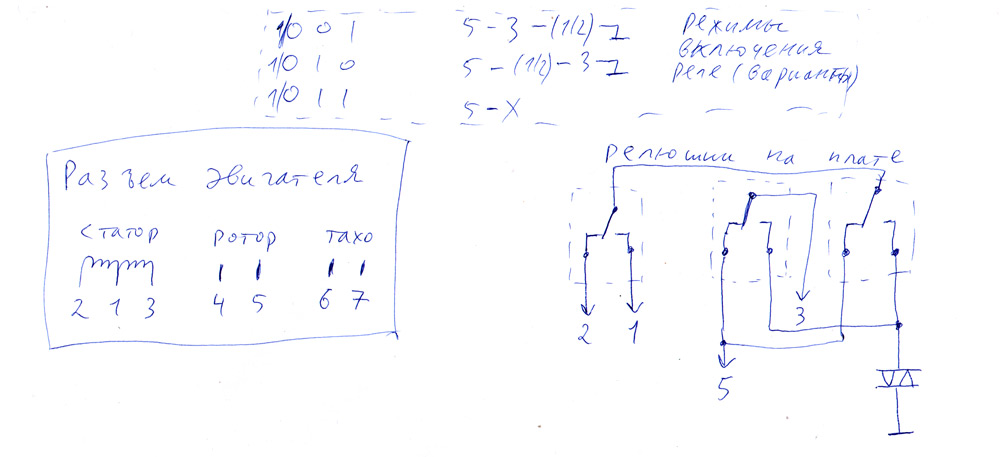 1/0 0 1 5-3-(1/2)-1 режимы
включения
1/0 1 0 5-(1/2)-3-1 реле (варианты)
1/0 1 1 5-X
Разъем двигателя
статор ротор тахо
2 1 3 4 5 6 7
релюшки на плате
2 1 3
5